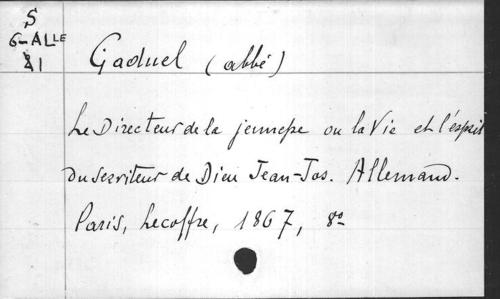 S
6-ALLE
21
Gaduel (abbé)
Le Directeur de la jeunesse ou la Vie et l'esprit
du serviteur de Dieu Jean-Jos. Allemand.
Paris, Lecoffre, 1867, 8º